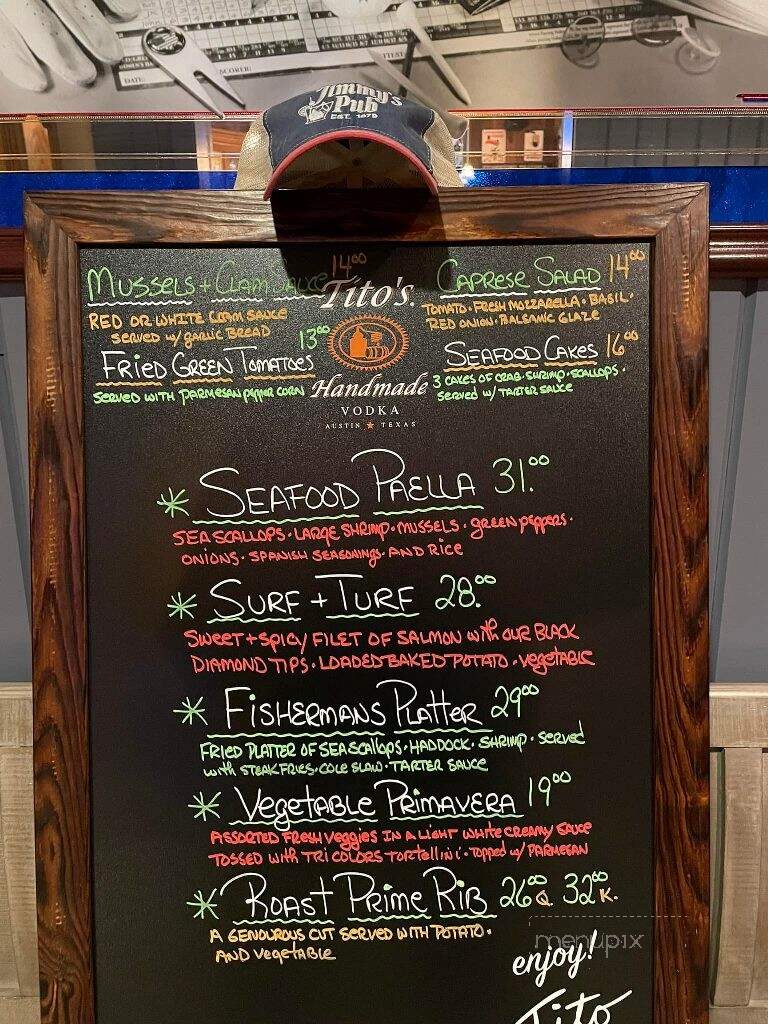 DATE:
SCORER:
ATTEST:
Jimmy's
Pub
EST. 1978
MUSSELS + CLAM SAUCE 14.00
RED OR WHITE CLAM SAUCE
SERVED W/ GARLIC BREAD
13.00
FRIED GREEN TOMATOES
SERVED WITH PARMESAN PEPPER CORN
Tito's
Handmade
VODKA
AUSTIN ★ TEXAS
CAPRESE SALAD 14.00
TOMATO · FRESH MOZZARELLA · BASIL ·
RED ONION · BALSAMIC GLAZE
SEAFOOD CAKES 16.00
3 CAKES OF CRAB · SHRIMP · SCALLOPS ·
SERVED W/ TARTER SAUCE
* SEAFOOD PAELLA 31.00
SEA SCALLOPS · LARGE SHRIMP · MUSSELS · GREEN PEPPERS ·
ONIONS · SPANISH SEASONINGS · AND RICE
* SURF + TURF 28.00
SWEET + SPICY FILET OF SALMON WITH OUR BLACK
DIAMOND TIPS · LOADED BAKED POTATO · VEGETABLE
* FISHERMANS PLATTER 29.00
FRIED PLATTER OF SEA SCALLOPS · HADDOCK · SHRIMP · SERVED
WITH STEAK FRIES · COLE SLAW · TARTER SAUCE
* VEGETABLE PRIMAVERA 19.00
ASSORTED FRESH VEGGIES IN A LIGHT WHITE CREAMY SAUCE
TOSSED WITH TRI COLORS TORTELLINI · TOPPED W/ PARMESAN
* ROAST PRIME RIB 26.00 Q. 32.00 K.
A GENOUROUS CUT SERVED WITH POTATO ·
AND VEGETABLE
menupix
enjoy!
Tito